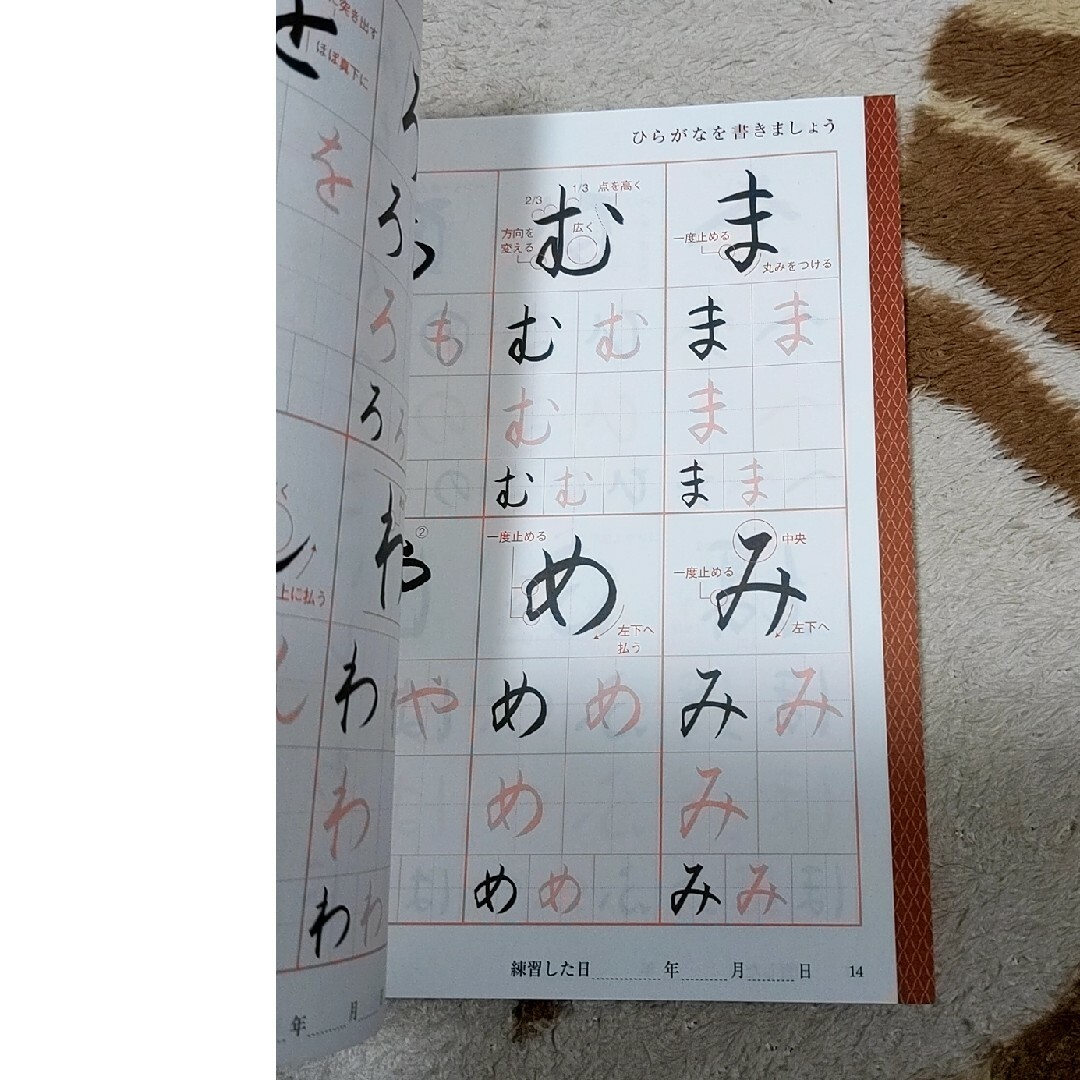 ひらがなを書きましょう
ま
一度止める
丸みをつける
ま ま
ま
ま ま
み
中央
一度止める
左下へ
み み
み
み み
む
2/3
1/3
点を高く
方向を
変える
広く
む む
む
む む
め
一度止める
左下へ
払う
め め
め
め め
も
②
や
練習した日 年 月 日 14
ろ
ろ
ろ
わ
わ
わ
わ わ
を
突き出す
ほぼ真下に
上に払う
年 月